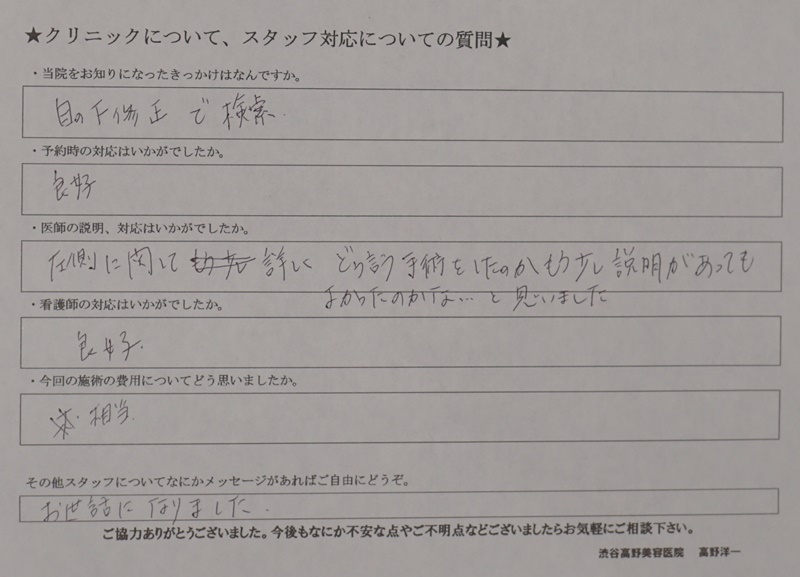 ★クリニックについて、スタッフ対応についての質問★
・当院をお知りになったきっかけはなんですか。
目の下修正で検索.
・予約時の対応はいかがでしたか。
良好
・医師の説明、対応はいかがでしたか。
左側に関して 詳しく どう言う手術をしたのかもう少し説明があっても
よかったのかな…と思いました
・看護師の対応はいかがでしたか。
良好.
・今回の施術の費用についてどう思いましたか。
相当.
その他スタッフについてなにかメッセージがあればご自由にどうぞ。
お世話になりました.
ご協力ありがとうございました。今後もなにか不安な点やご不明点などございましたらお気軽にご相談下さい。
渋谷高野美容医院 高野洋一